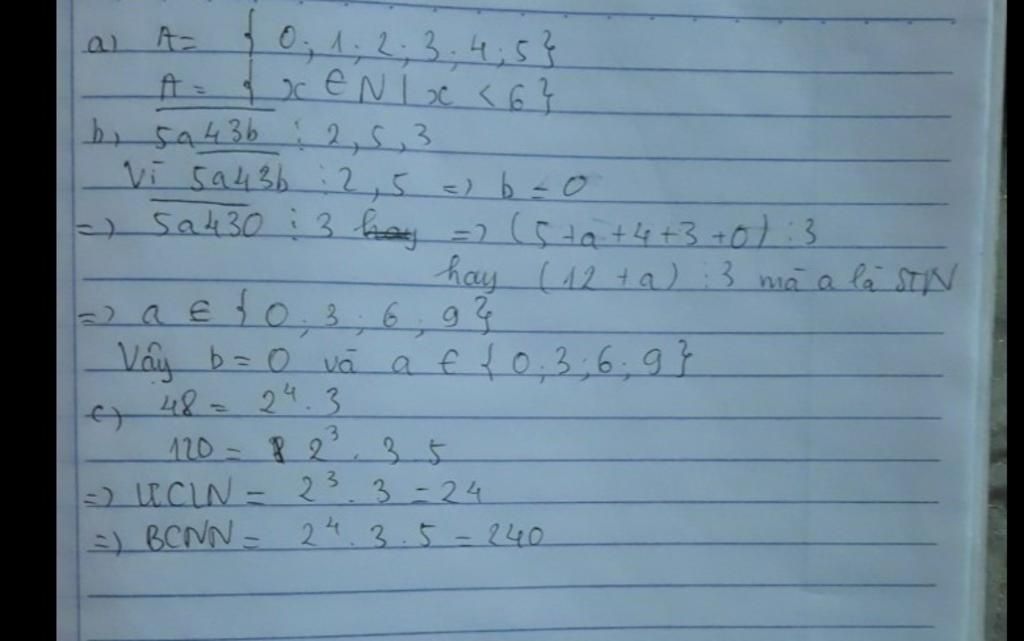 a) A = { 0; 1; 2; 3; 4; 5}
A = { x ∈ N | x < 6}
b, 5a43b ⋮ 2, 5, 3
Vì 5a43b ⋮ 2, 5 => b = 0
=> 5a430 ⋮ 3 hay => (5+a+4+3+0) ⋮ 3
hay (12+a) ⋮ 3 mà a là STN
=> a ∈ { 0; 3; 6; 9}
Vậy b = 0 và a ∈ { 0; 3; 6; 9}
c) 48 = 2⁴ . 3
120 = 2³ . 3 . 5
=> ƯCLN = 2³ . 3 = 24
=> BCNN = 2⁴ . 3 . 5 = 240